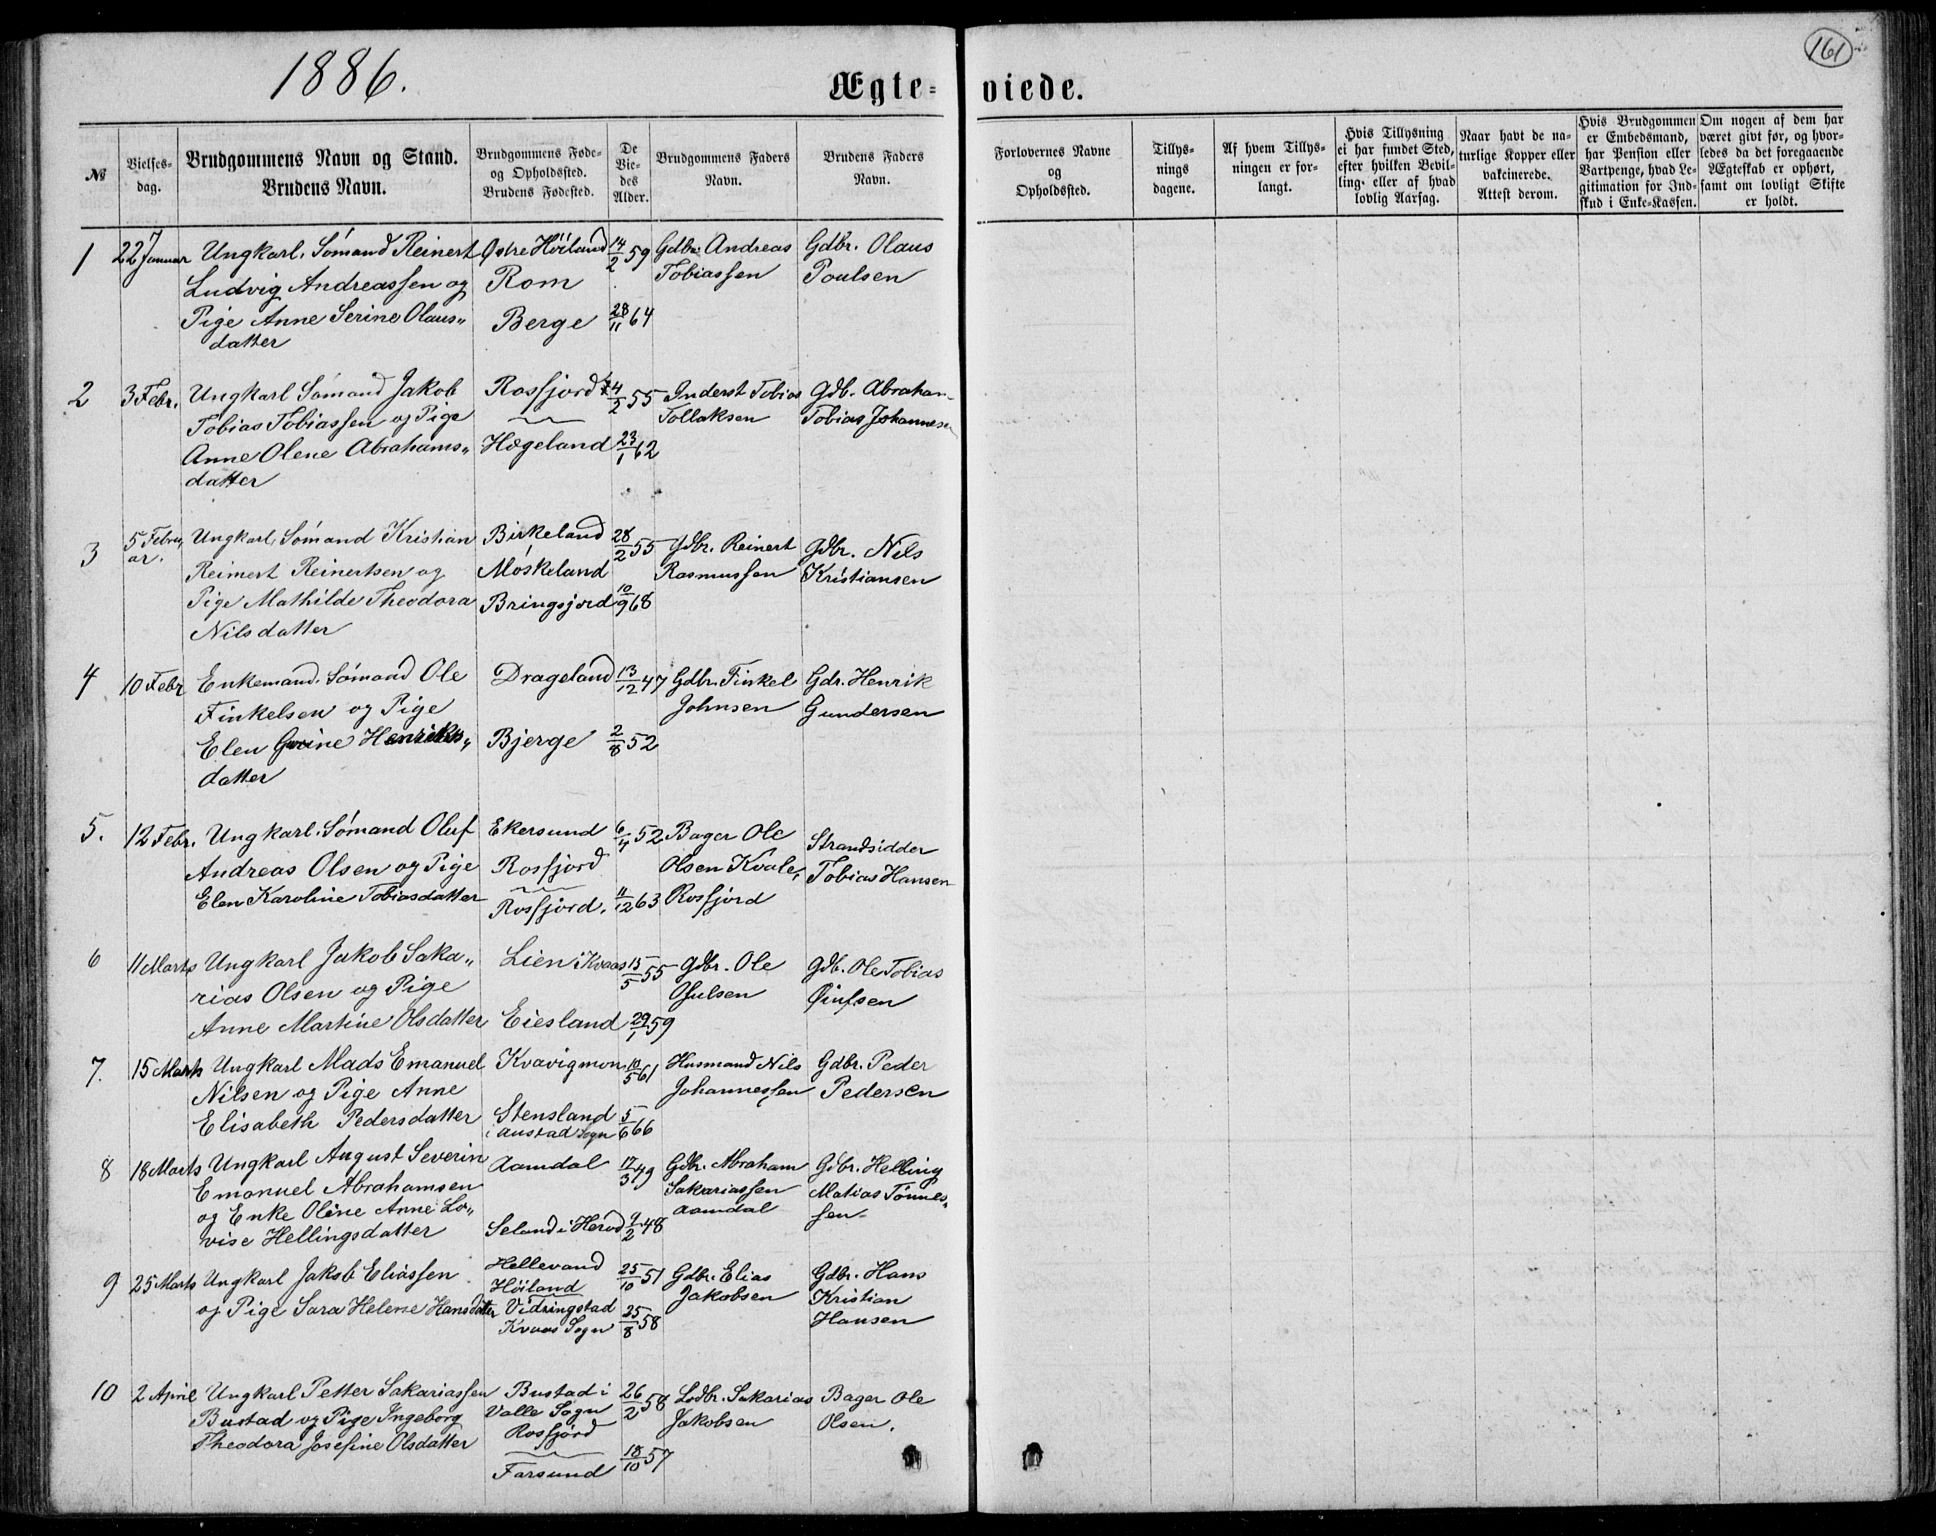 1886.
Ægte- viede.
161
№
Vielses-
dag.
Brudgommens Navn og Stand.
Brudens Navn.
Brudgommens Føde-
og Opholdsted.
Brudens Fødested.
De
Vie-
des
Alder.
Brudgommens Faders
Navn.
Brudens Faders
Navn.
Forlovernes Navne
og
Opholdsted.
Tillys-
nings
dagene.
Af hvem Tillys-
ningen er for-
langt.
Hvis Tillysning
ei har fundet Sted,
efter hvilken Bevil-
ling eller af hvad
lovlig Aarsag.
Naar havt de na-
turlige Kopper eller
vakcinerede.
Attest derom.
Hvis Brudgommen
er Embedsmand,
har Pension eller
Vartpenge, hvad Le-
gitimation for Ind-
skud i Enke-Kassen.
Om nogen af dem har
været givt før, og hvor-
ledes da det foregaaende
Ægteskab er ophørt,
samt om lovligt Skifte
er holdt.
1 Januar Ungkarl. Sømand Reinert Østre Höiland 14/2 59 Gdbr. Andreas Gdbr. Olaus
Ludvig Andreassen og Rom Tobiassen Poulsen
Pige Anne Serine Olaus„ Berge 28/11 64
datter
2 3 Febr. Ungkarl Sømand Jakob Rosfjord 4/2 55 Inderst Tobias Gdb. Abraham
Tobias Tobiassen og Pige Tollaksen Tobias Johannesen
Anne Olene Abrahams„ Hægeland 23/1 62
datter
3 5 Febru„ Ungkarl, Sømand Kristian Birkeland 28/2 55 Gdbr. Reinert Gdbr. Nils
ar. Reinert Reinertsen og Möskeland Rasmussen Kristiansen
Pige Mathilde Theodora Bringsjord 10/9 68
Nilsdatter
4 10 Febr Enkemand. Sømand Ole Drageland 13/12 47 Gdbr. Finkel Gdr. Henrik
Finkelsen og Pige Johnsen Gundersen
Elen Henriks„ Bjerge 2/8 52
datter
5. 12 Febr. Ungkarl. Sømand Oluf Ekersund 6/4 52 Bager Ole Strandsidder
Andreas Olsen og Pige Rosfjord Olsen Kvale, Tobias Hansen
Elen Karoline Tobiasdatter Rosfjord. 11/12 63 Rosfjord
6 11 Marts Ungkarl Jakob Saka„ Lien i Kvaas 15/5 55 Gdbr. Ole Gdb. Ole Tobias
rias Olsen og Pige
Anne Martine Olsdatter Eiesland 29/1 59
7. 15 Marts Ungkarl Mads Emanuel Kvavigmon 10/5 61 Husmand Nils Gdbr. Peder
Nilsen og Pige Anne Johannessen Pedersen
Elisabeth Pedersdatter Stensland 5/6 66
i Austad Sogn
8 18 Marts Ungkarl August Severin Aamdal 17/3 49 Gdbr. Abraham Gdbr. Helling
Emanuel Abrahamsen Sakariassen Matias Tönnes„
og Enke Oline Anne Lo„ Aamdal sen
vise Hellingsdatter Seland i Herod 9/2 48
9 25 Marts Ungkarl Jakob Eliassen Hellevand 25/10 51 Gdbr. Elias Gdbr. Hans
og Pige Sara Helene Hansdatter Höiland Jakobsen Kristian
Vidringstad 25/8 58 Hansen
Kvaas Sogn
10 2 April Ungkarl Petter Sakariassen Bustad i 26/2 58 Sakarias Bager Ole
Bustad og Pige Ingeborg Valle Sogn Jakobsen Olsen.
Theodora Josefine Olsdatter Rosfjord
Farsund 18/10 57